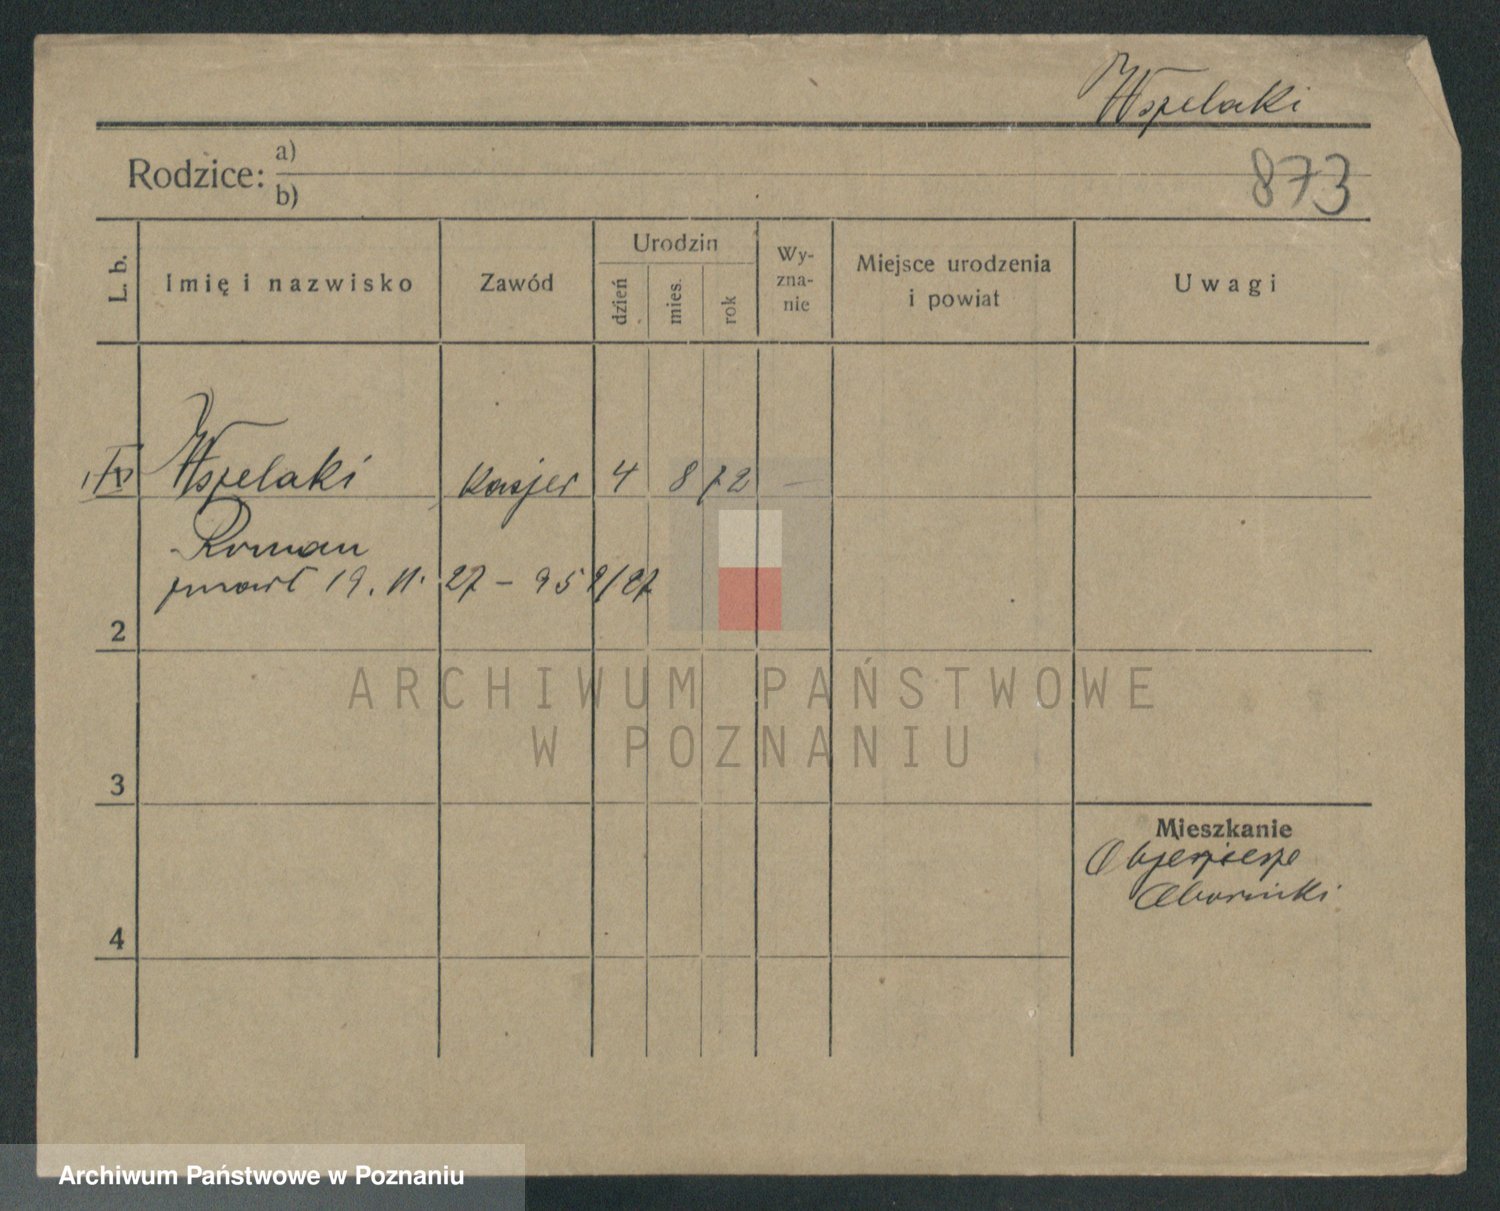 Wszelaki
Rodzice: a)
b)
873
L. b.
Imię i nazwisko
Zawód
Urodzin
dzień
mies.
rok
Wy-
zna-
nie
Miejsce urodzenia
i powiat
Uwagi
Wszelaki kasjer 4 8 72 –
Roman
zmarł 19. 11. 27 – 952/27
2
3
4
Mieszkanie
Objezierze
Obornicki
ARCHIWUM PAŃSTWOWE
W POZNANIU
Archiwum Państwowe w Poznaniu